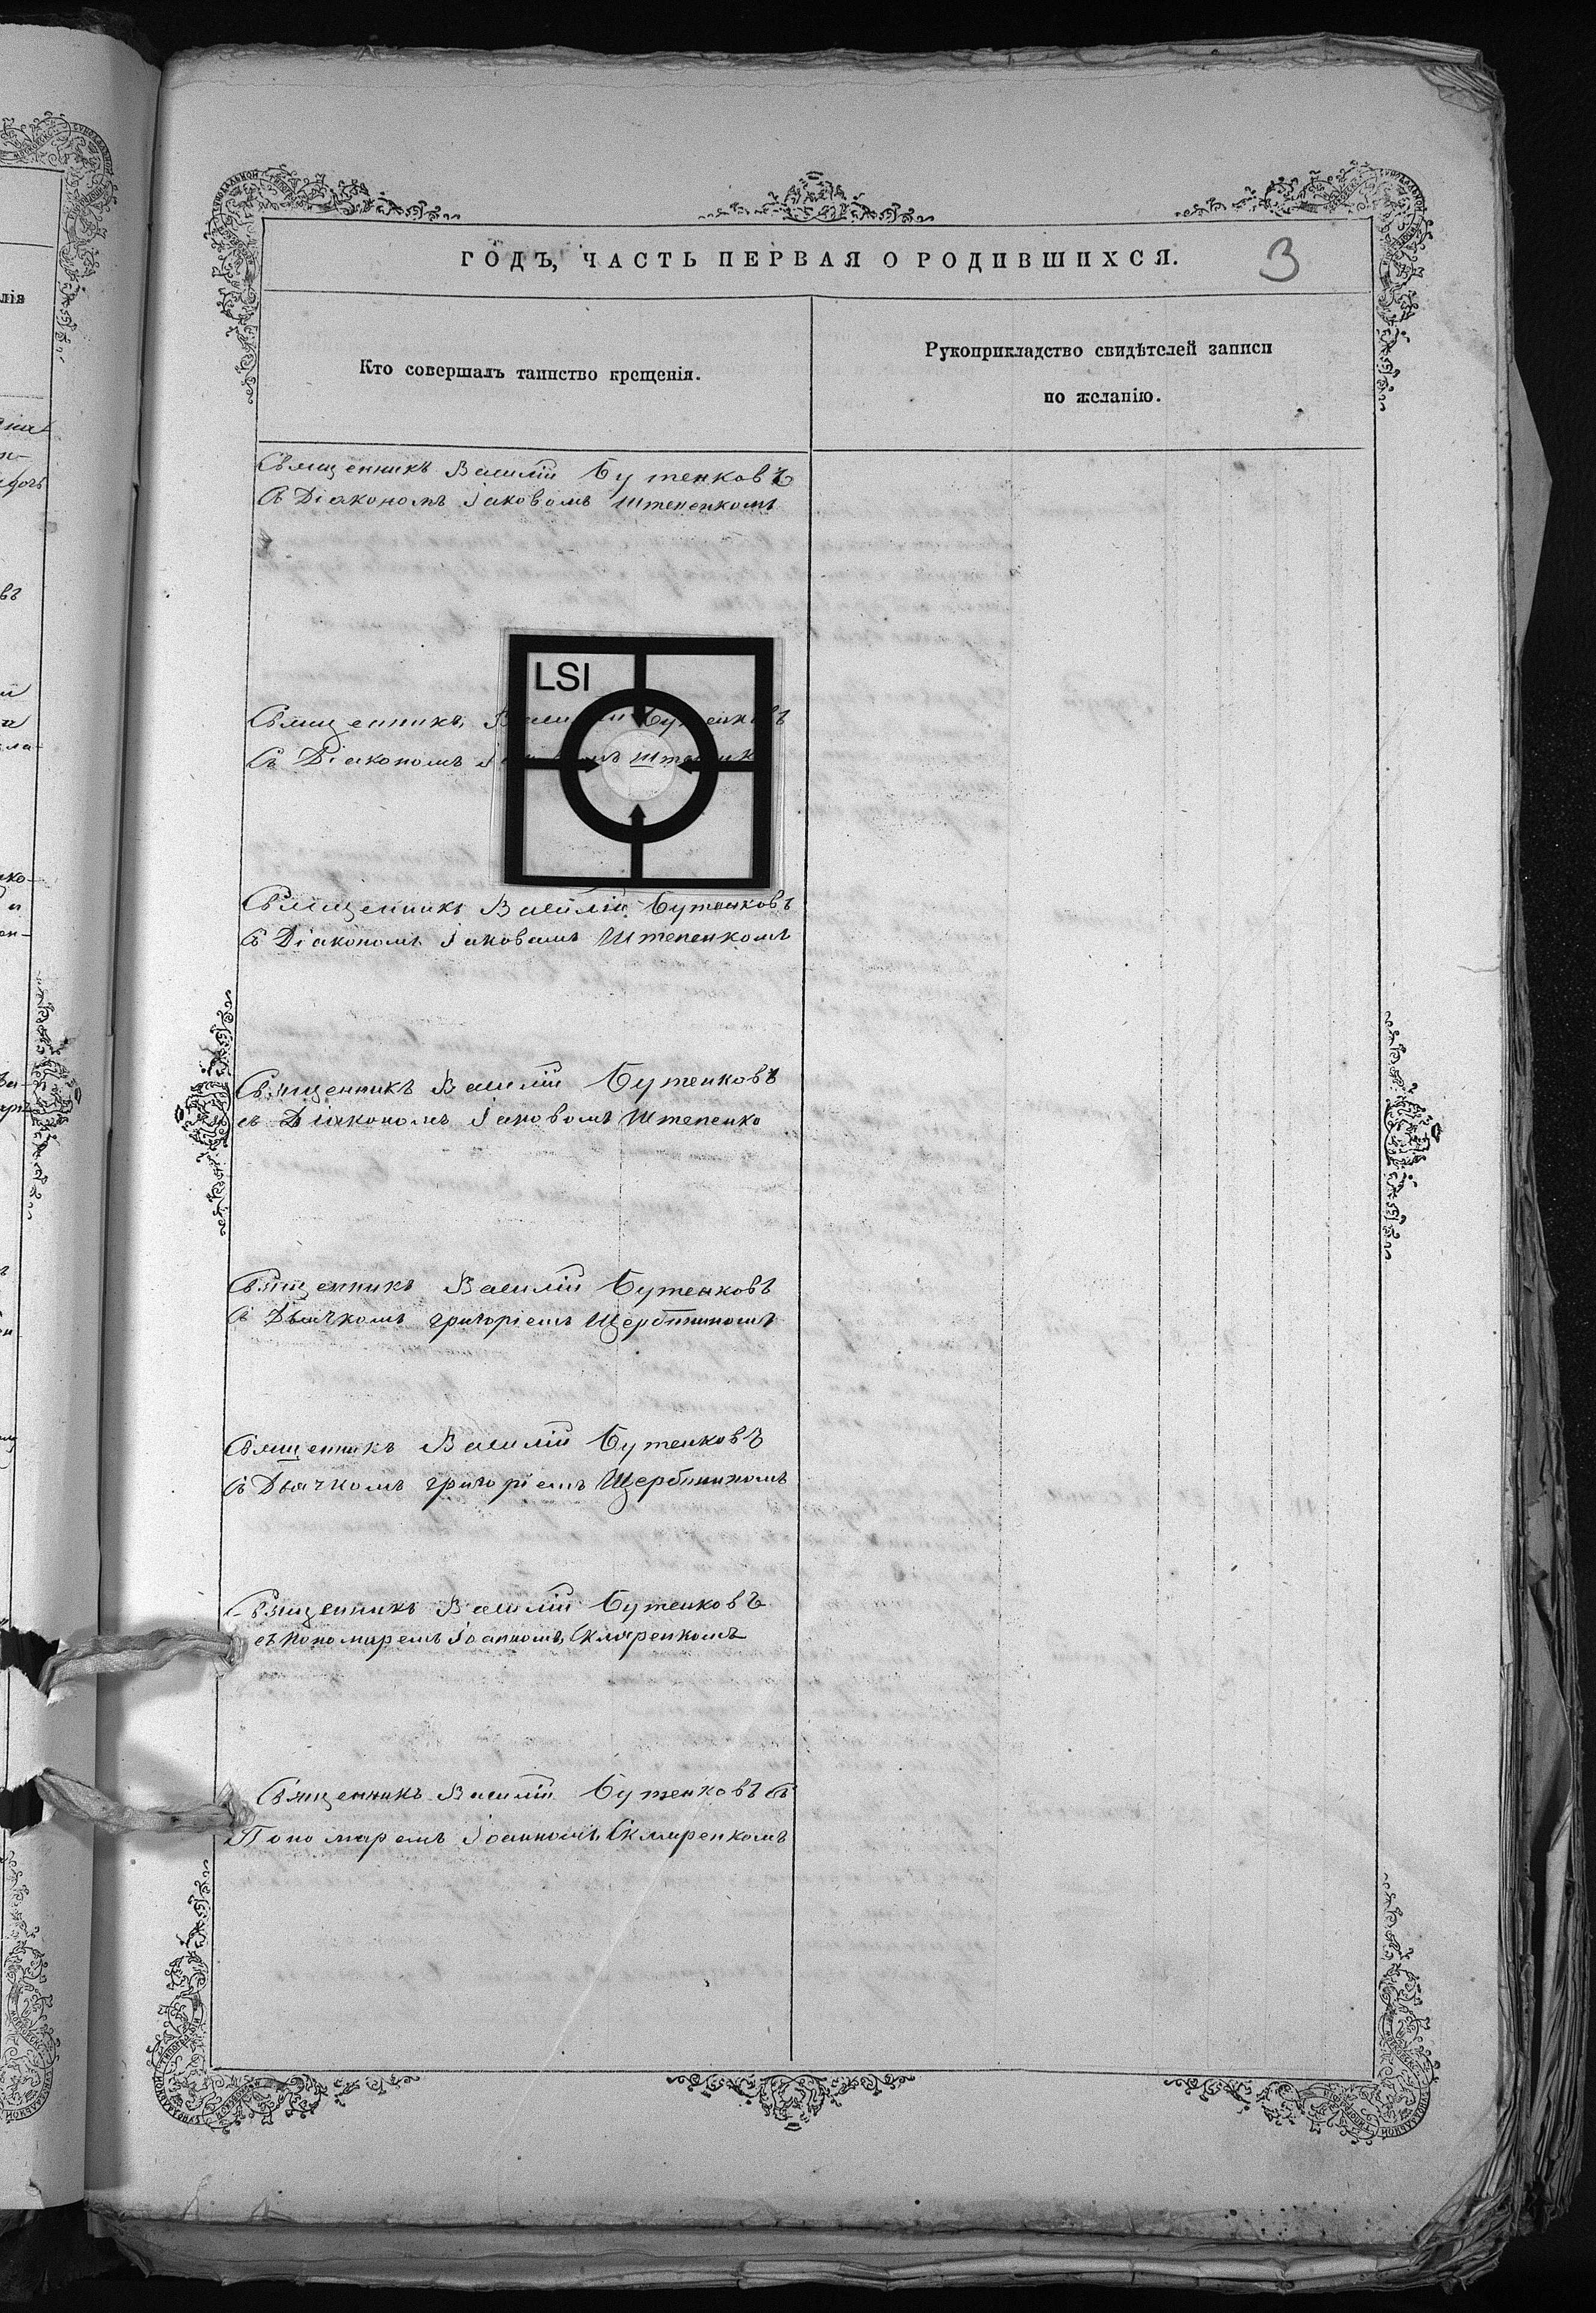 ГОДЪ, ЧАСТЬ ПЕРВАЯ О РОДИВШИХСЯ.
3
Кто совершалъ таинство крещенія.
Рукоприкладство свидѣтелей записи
по желанію.
Священникъ Василій Бутенковъ
съ Діакономъ Іаковомъ Штепенкомъ
LSI
Священникъ Василій Бутенковъ
съ Діакономъ
Священникъ Василій Бутенковъ
съ Діакономъ Іаковомъ Штепенкомъ
Священникъ Василій Бутенковъ
съ Діакономъ Іаковомъ Штепенко
Священникъ Василій Бутенковъ
съ Дьячкомъ Григоріемъ Щербининомъ
Священникъ Василій Бутенковъ
съ Дьячкомъ Григоріемъ Щербининомъ
Священникъ Василій Бутенковъ
съ Пономаремъ Іоанномъ Скляренкомъ
Священникъ Василій Бутенковъ съ
Пономаремъ Іоанномъ Скляренкомъ